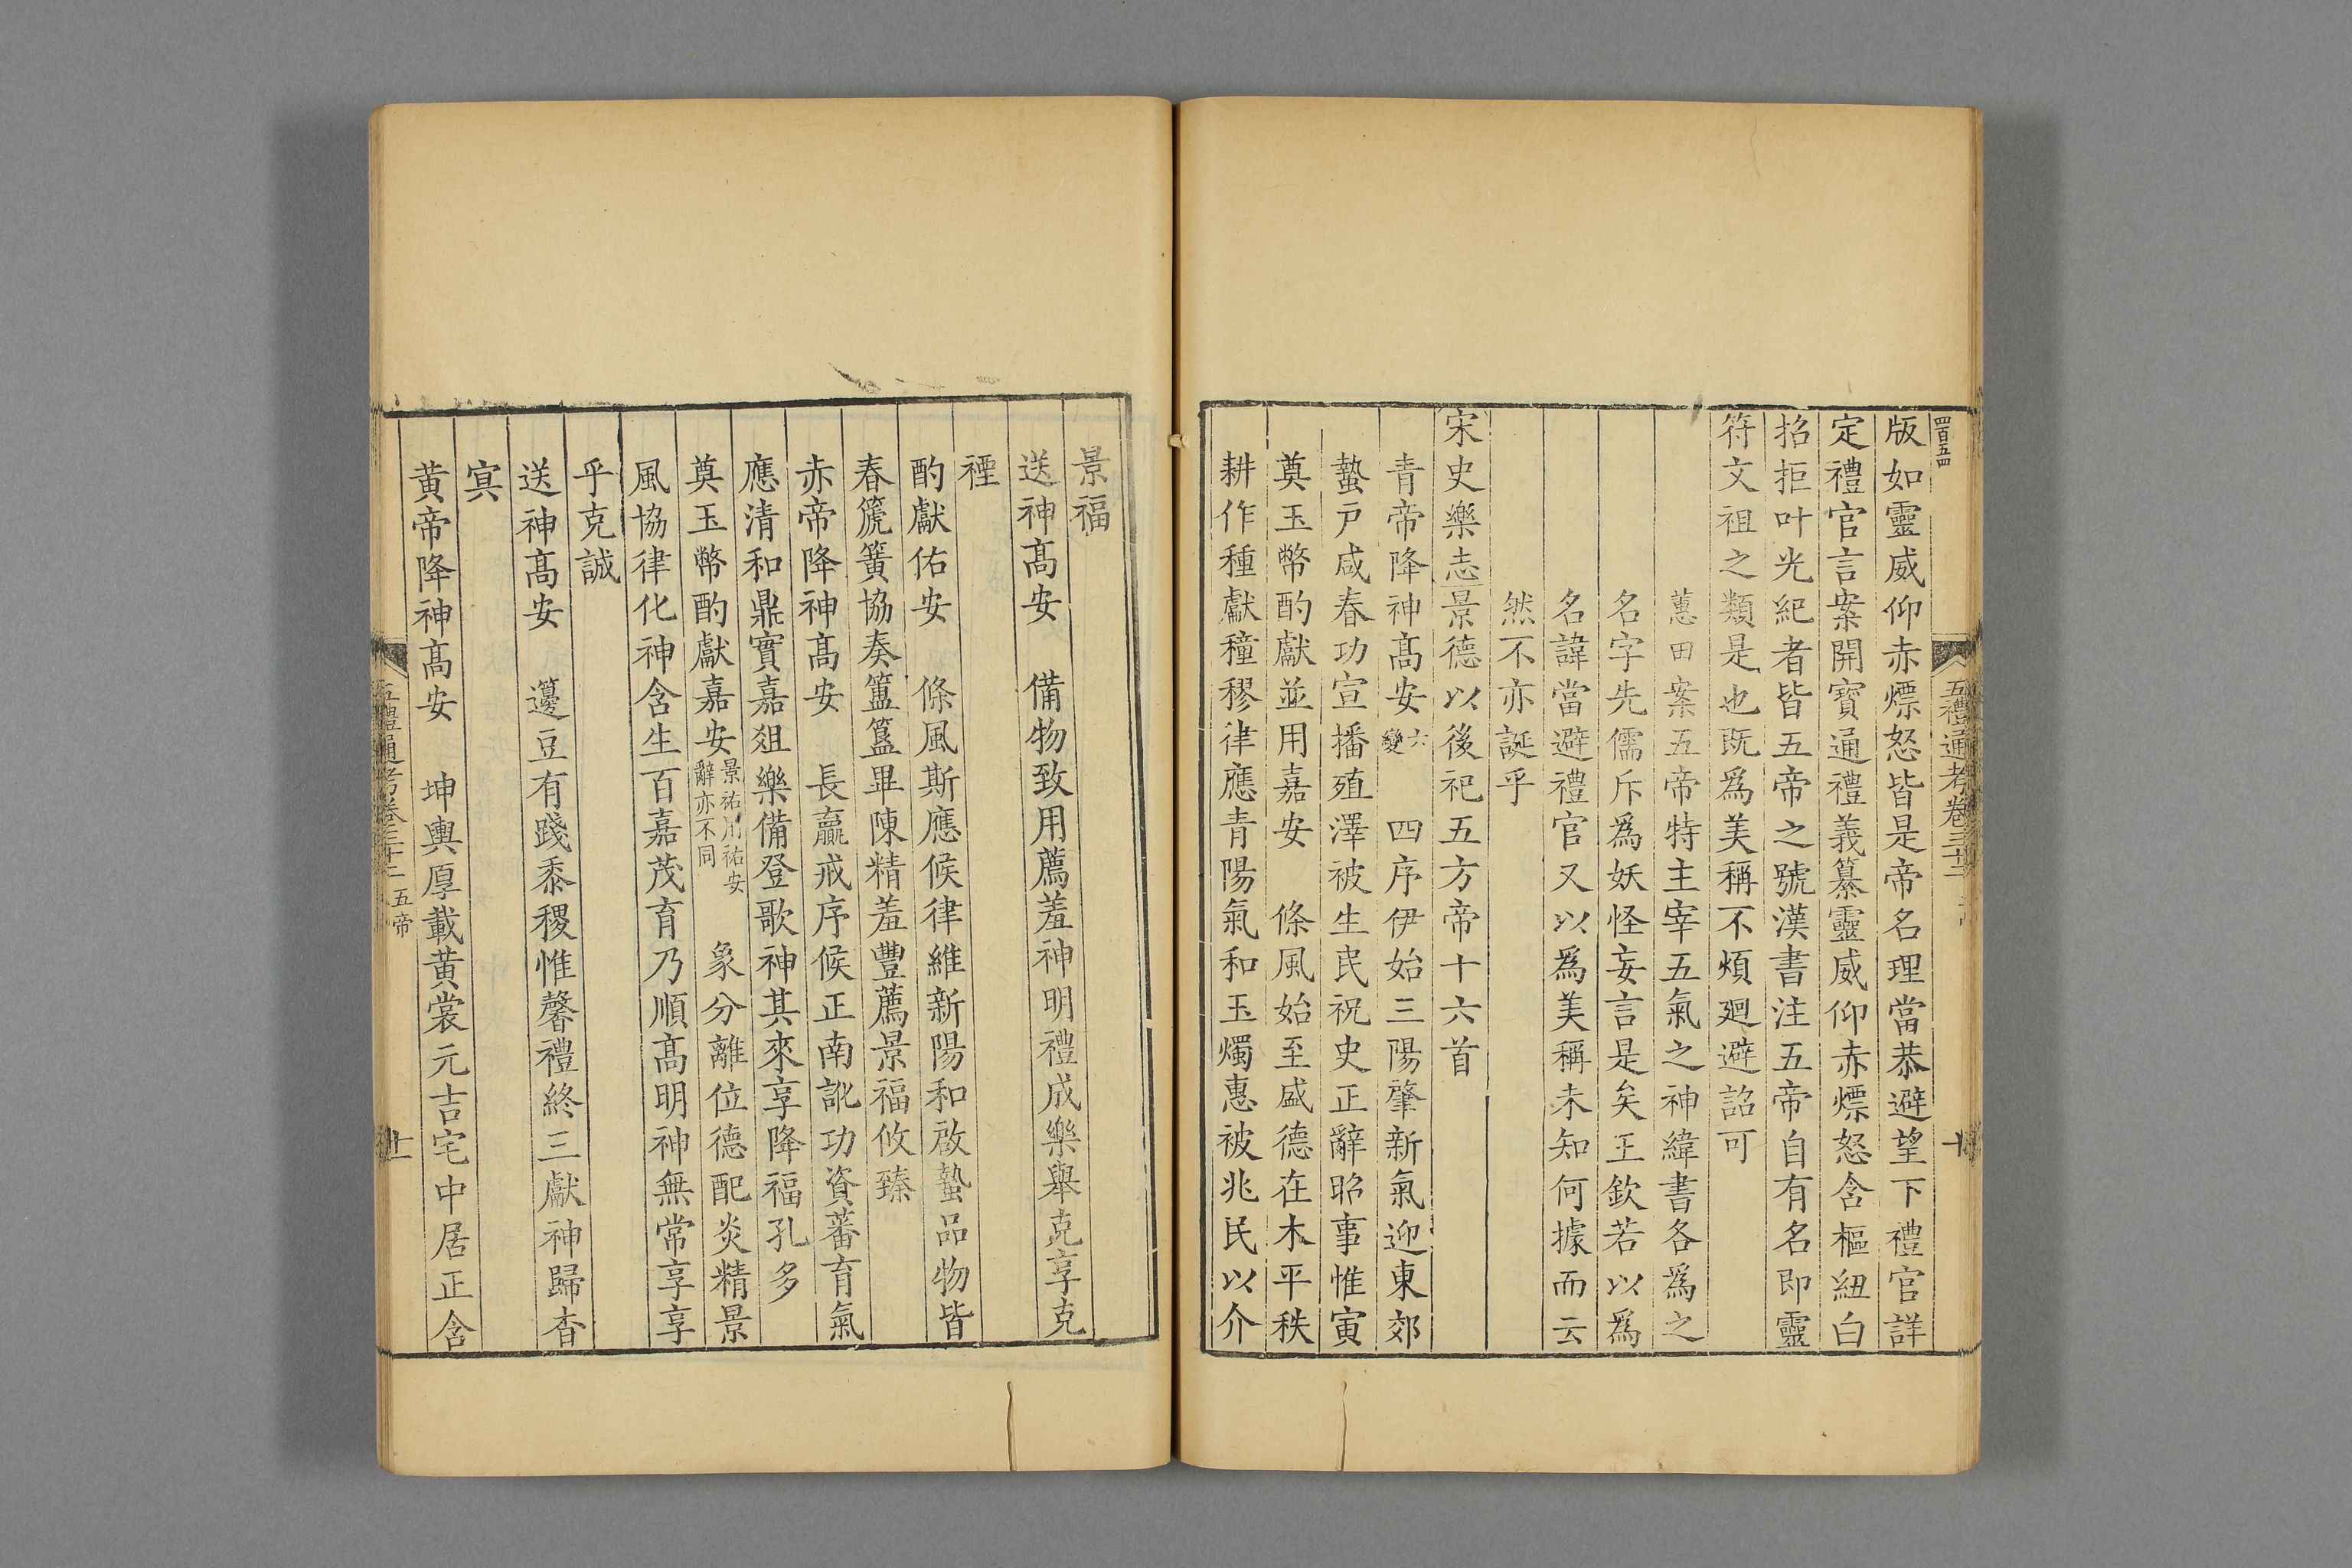 四百五四
五禮通考卷三十二
十
版如靈威仰赤熛怒皆是帝名理當恭避望下禮官詳
定禮官言案開寶通禮義纂靈威仰赤熛怒含樞紐白
招拒叶光紀者皆五帝之號漢書注五帝自有名即靈
符文祖之類是也既爲美稱不煩廻避詔可
蕙田案五帝特主宰五氣之神緯書各爲之
名字先儒斥爲妖怪妄言是矣王欽若以爲
名諱當避禮官又以爲美稱未知何據而云
然不亦誕乎
宋史樂志景德以後祀五方帝十六首
青帝降神髙安六變 四序伊始三陽肇新氣迎東郊
蟄戸咸春功宣播殖澤被生民祝史正辭昭事惟寅
奠玉幣酌獻並用嘉安 條風始至盛德在木平秩
耕作種獻穜穋律應青陽氣和玉燭惠被兆民以介
景福
送神髙安 備物致用薦羞神明禮成樂舉克享克
禋
酌獻佑安 條風斯應候律維新陽和啟蟄品物皆
春箎簧協奏簠簋畢陳精羞豐薦景福攸臻
赤帝降神髙安 長蠃戒序候正南訛功資蕃育氣
應清和鼎實嘉俎樂備登歌神其來享降福孔多
奠玉幣酌獻嘉安景祐用祐安辭亦不同 象分離位德配炎精景
風協律化神含生百嘉茂育乃順髙明神無常享享
乎克誠
送神髙安 籩豆有踐黍稷惟馨禮終三獻神歸杳
㝠
黃帝降神髙安 坤輿厚載黃裳元吉宅中居正含
五禮通考卷三十二 五帝
十一